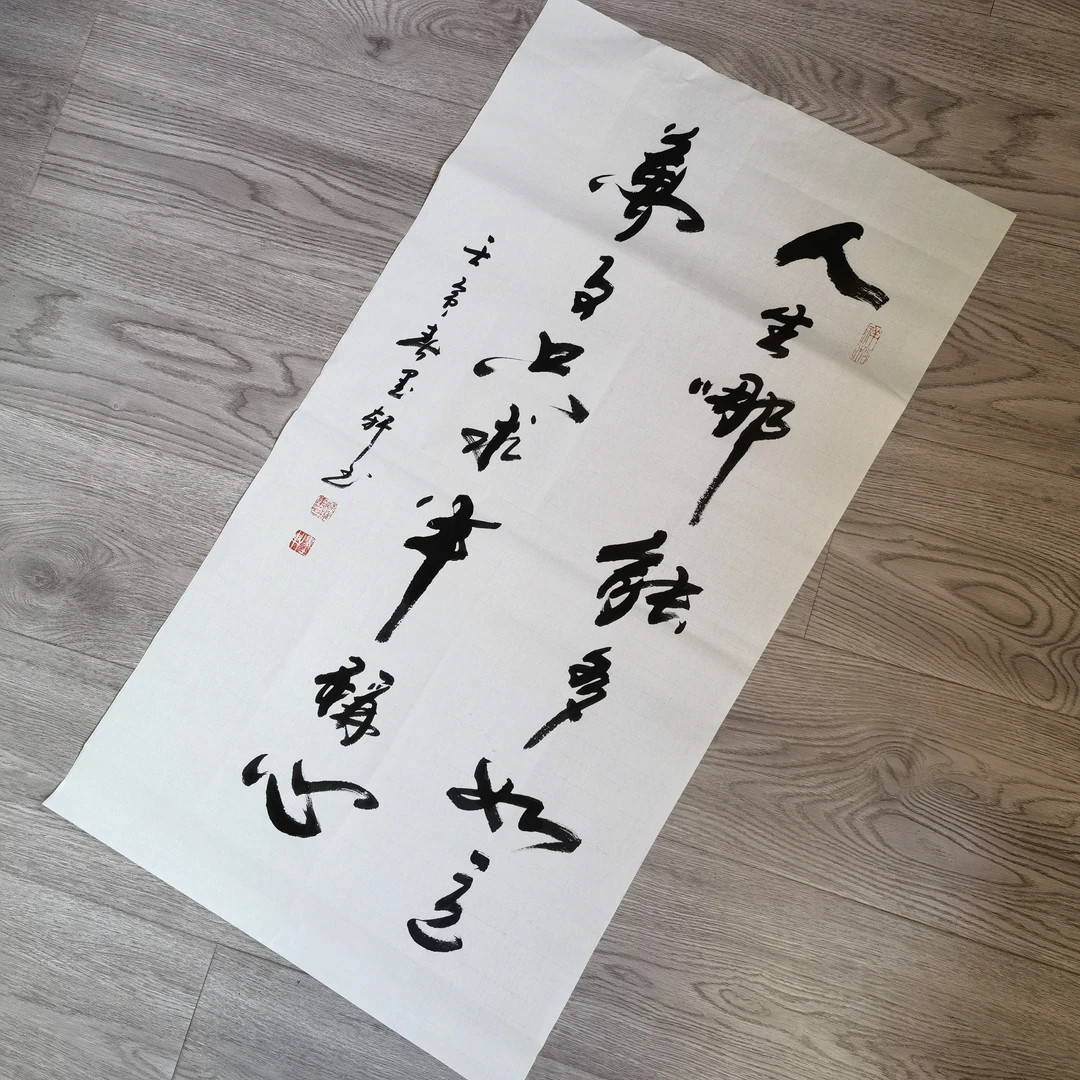 人生哪能多如意
萬事只求半稱心
壬寅春墨轩书